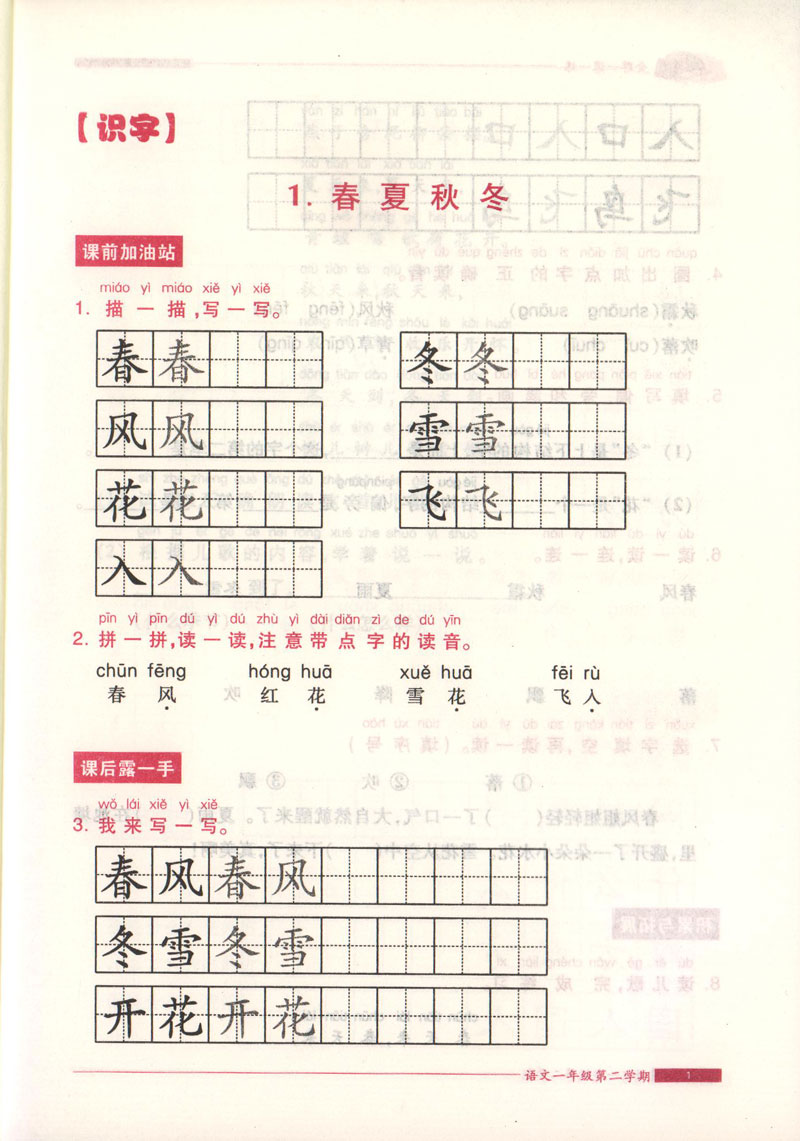 【识字】
1. 春夏秋冬
课前加油站
miáo yì miáo xiě yì xiě
1. 描一描,写一写。
春春 冬冬
风风 雪雪
花花 飞飞
入入
pīn yì pīn dú yì dú zhù yì dài diǎn zì de dú yīn
2. 拼一拼,读一读,注意带点字的读音。
chūn fēng hóng huā xuě huā fēi rù
春风 红花 雪花 飞入
课后露一手
wǒ lái xiě yì xiě
3. 我来写一写。
春风春风
冬雪冬雪
开花开花
语文一年级第二学期 1